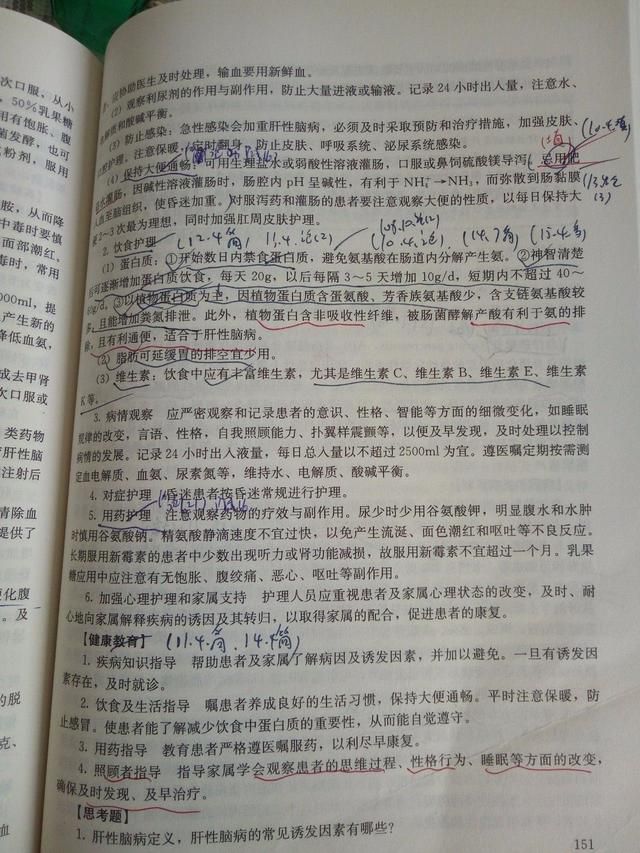 应协助医生及时处理，输血要用新鲜血。
（2）观察利尿剂的作用与副作用，防止大量进液或输液。记录24小时出入量，注意水、
电解质和酸碱平衡。
（3）防止感染：急性感染会加重肝性脑病，必须及时采取预防和治疗措施，加强皮肤、
口腔护理。注意保暖，定时翻身，防止皮肤、呼吸系统、泌尿系统感染。
（4）保持大便通畅：可用生理盐水或弱酸性溶液灌肠，口服或鼻饲硫酸镁导泻（忌用肥
皂水灌肠，因碱性溶液灌肠时，肠腔内pH呈碱性，有利于NH₄⁺→NH₃，而弥散到肠黏膜
入血至脑组织，使昏迷加重。）对服泻药和灌肠的患者要注意观察大便的性质，以每日保持大
便2～3次最为理想，同时加强肛周皮肤护理。
2. 饮食护理 （12.4简 11.4.论(2) （10.4.论） （14.7简）（15.4.
（1）蛋白质：①开始数日内禁食蛋白质，避免氨基酸在肠道内分解产生氨。②神智清楚
后可逐渐增加蛋白质饮食，每天20g，以后每隔3～5天增加10g/d，短期内不超过40～
60g/d。③以植物蛋白质为主，因植物蛋白质含蛋氨酸、芳香族氨基酸少，含支链氨基酸较
多，且能增加粪氮排泄。此外，植物蛋白含非吸收性纤维，被肠菌酵解产酸有利于氨的排
除，且有利通便，适合于肝性脑病。
（2）脂肪可延缓胃的排空宜少用。
（3）维生素：饮食中应有丰富维生素，尤其是维生素C、维生素B、维生素E、维生素
K等。
3. 病情观察 应严密观察和记录患者的意识、性格、智能等方面的细微变化，如睡眠
规律的改变，言语、性格，自我照顾能力、扑翼样震颤等，以便及早发现，及时处理以控制
病情的发展。记录24小时出入液量，每日总入量以不超过2500ml为宜。遵医嘱定期按需测
定血电解质、血氨、尿素氮等，维持水、电解质、酸碱平衡。
4. 对症护理 昏迷患者按昏迷常规进行护理。
5. 用药护理 注意观察药物的疗效与副作用。尿少时少用谷氨酸钾，明显腹水和水肿
时慎用谷氨酸钠。精氨酸静滴速度不宜过快，以免产生流涎、面色潮红和呕吐等不良反应。
长期服用新霉素的患者中少数出现听力或肾功能减损，故服用新霉素不宜超过一个月。乳果
糖应用中应注意有无饱胀、腹绞痛、恶心、呕吐等副作用。
6. 加强心理护理和家属支持 护理人员应重视患者及家属心理状态的改变，及时、耐
心地向家属解释疾病的诱因及其转归，以取得家属的配合，促进患者的康复。
【健康教育】（11.4.简、14.4简）
1. 疾病知识指导 帮助患者及家属了解病因及诱发因素，并加以避免。一旦有诱发因
素存在，及时就诊。
2. 饮食及生活指导 嘱患者养成良好的生活习惯，保持大便通畅。平时注意保暖，防
止感冒。使患者能了解减少饮食中蛋白质的重要性，从而能自觉遵守。
3. 用药指导 教育患者严格遵医嘱服药，以利尽早康复。
4. 照顾者指导 指导家属学会观察患者的思维过程、性格行为、睡眠等方面的改变，
确保及时发现、及早治疗。
【思考题】
1. 肝性脑病定义，肝性脑病的常见诱发因素有哪些？
151
次口服，从小
50%乳果糖
用有饱胀、腹
菌发酵，也可
粒粉剂，服用
胺，从而降
中毒时要慎
面部潮红。
毒时，常用
000ml，提
产生新的
降低血氨，
成去甲肾
口服或
类药物
肝性脑
注射后
清除血
提供了
硬化腹
。及
的脱
克、
血